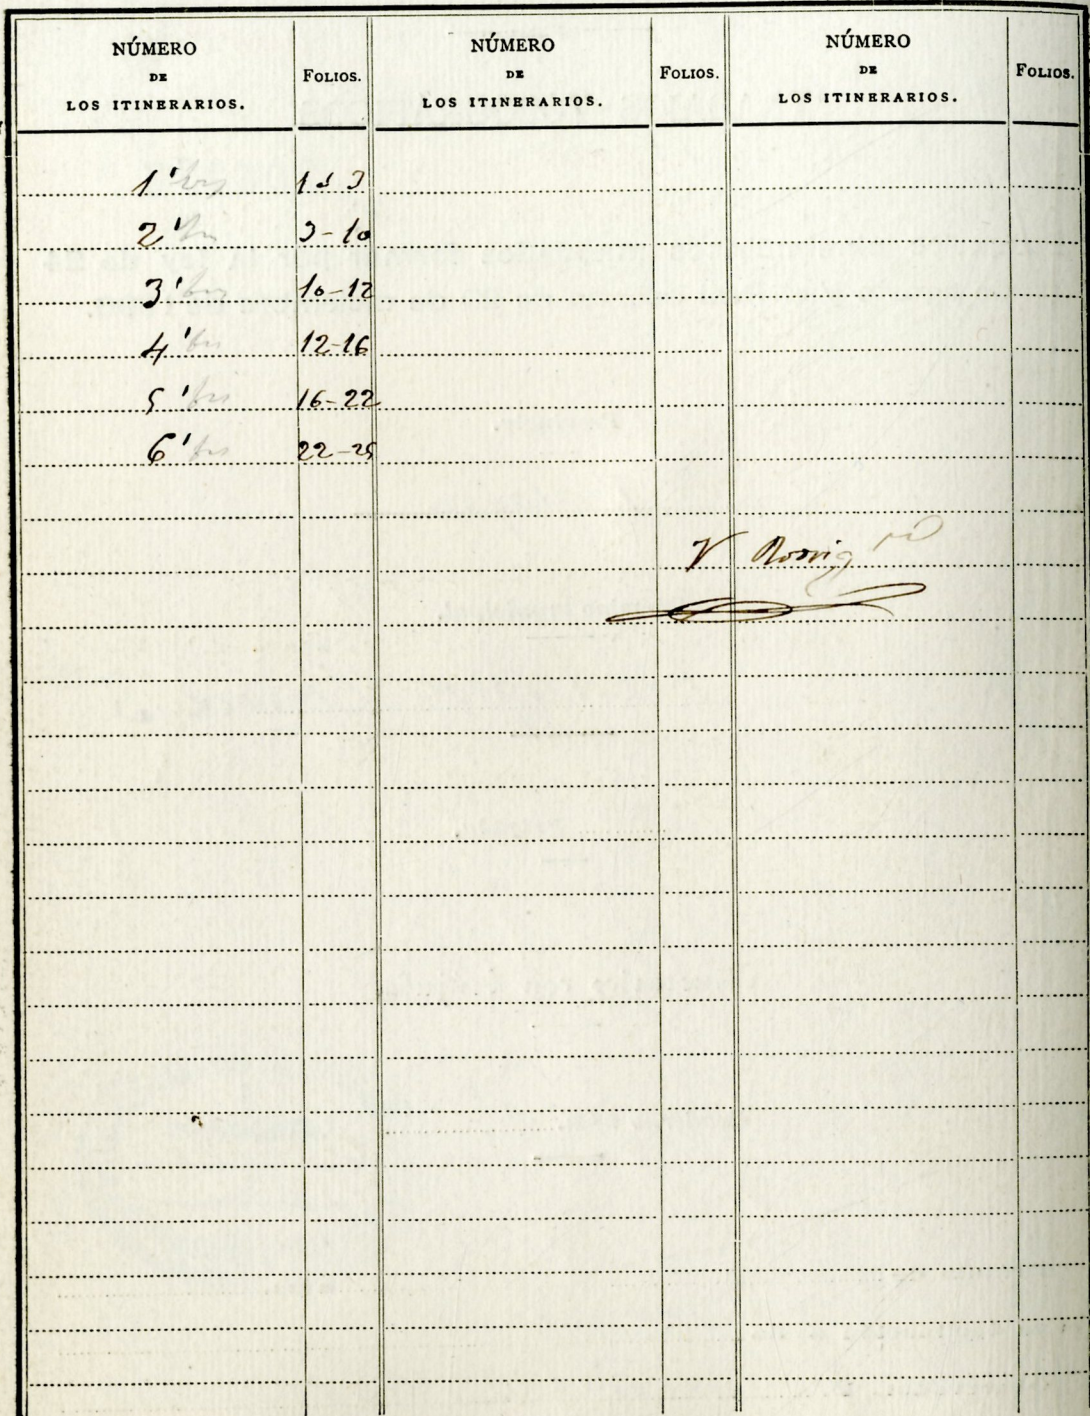 NÚMERO DE LOS ITINERARIOS. FOLIOS. NÚMERO DE LOS ITINERARIOS. FOLIOS. NÚMERO DE LOS ITINERARIOS. FOLIOS.
1' bis
2' bis
3' bis 10-12
4' bis 12-16
5' bis 16-22
6' bis 22-25
V